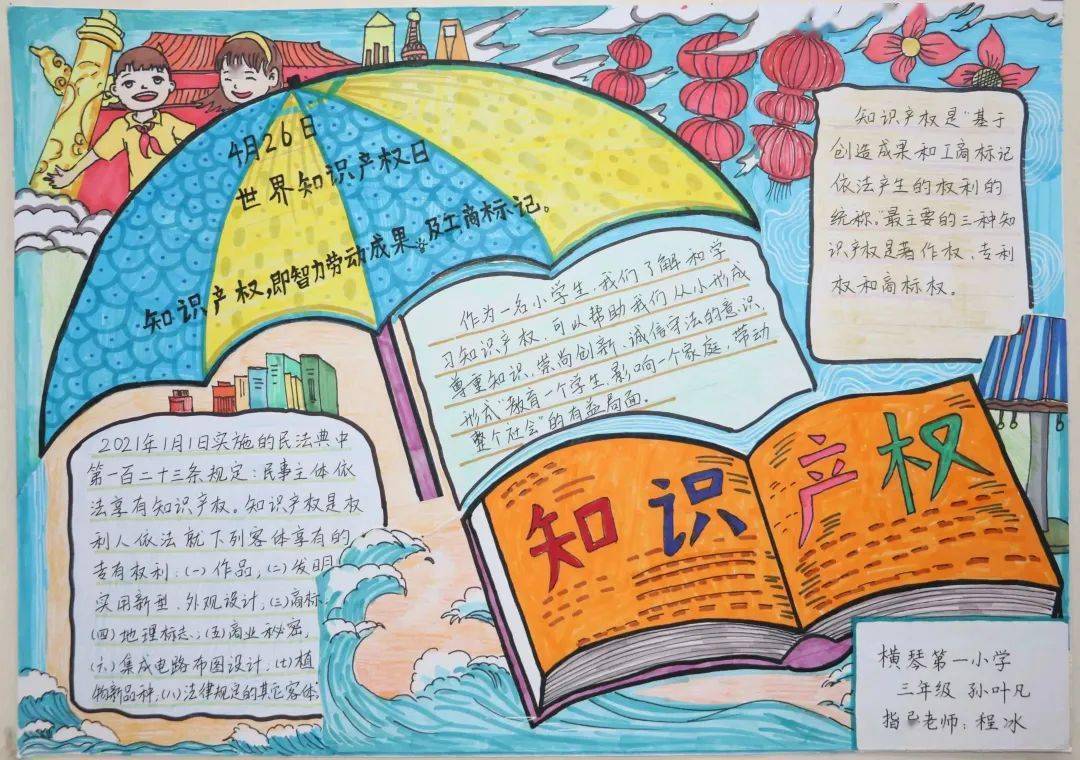 4月26日
世界知识产权日
知识产权,即智力劳动成果及工商标记。
知识产权是“基于
创造成果和工商标记
依法产生的权利的
统称。”最主要的三种知
识产权是著作权、专利
权和商标权。
作为一名小学生,我们了解和学
习知识产权,可以帮助我们从小形成
尊重知识、崇尚创新、诚信守法的意识,
形式“教育一个学生,影响一个家庭,带动
整个社会”的有益局面。
2021年1月1日实施的民法典中
第一百二十三条规定:民事主体依
法享有知识产权。知识产权是权
利人依法就下列客体享有的
专有权利:(一)作品,(二)发明、
实用新型、外观设计,(三)商标,
(四)地理标志;(五)商业秘密,
(六)集成电路布图设计,(七)植
物新品种,(八)法律规定的其它客体
知识产权
横琴第一小学
三年级 孙叶凡
指导老师:程冰